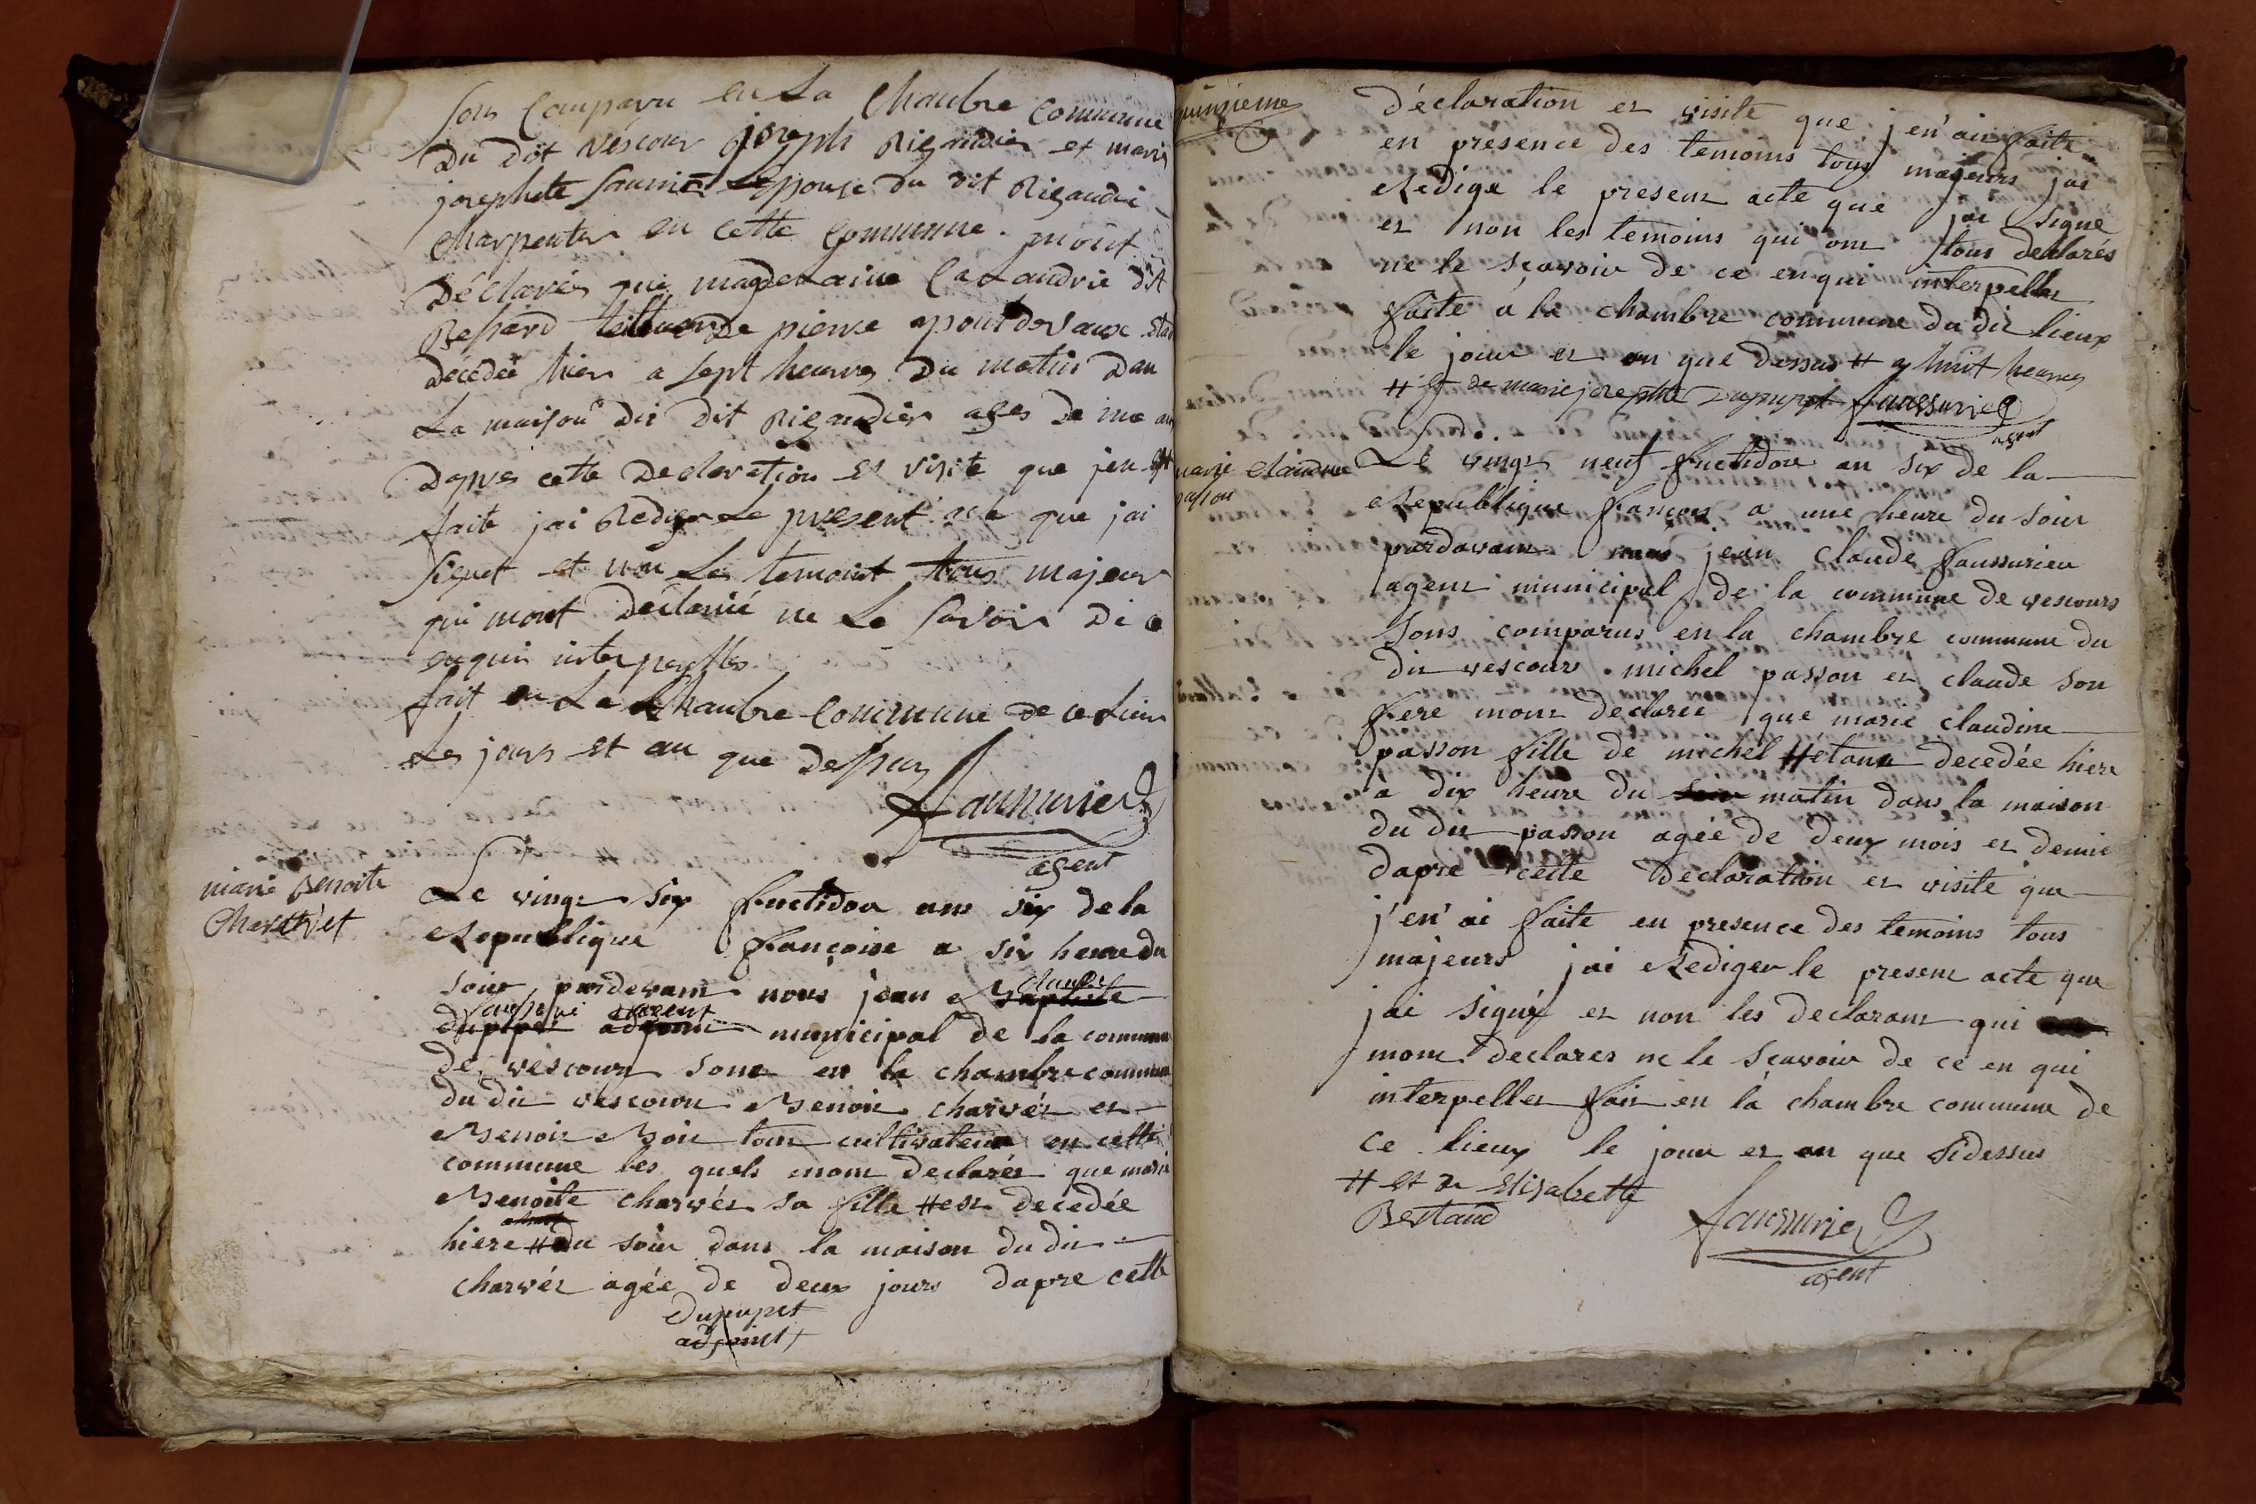 sons Comparu en La Chanbre Commune
Du dit véscour joseph Rigaudier et marie
josephete Saunié Lepouse du dit Rigaudié
Charpentier en cette Commune. mont
Déclarés que magdelaine Lalandrie dit
de pierre
décédée hier a sept heures Du matin Dan
La maison du dit Rigaudier ages De
Dapres cette Declaration et visite que jen ai
faite jai Rediger Le present acte que jai
signet et non Les temoint tous majeur
qui mont Déclarié ne Le savoir De ce
enquis interpelles
fait en La Chanbre Commune de ce Lieu
Les jours et an que Dessus
Faussurier
agent
marie Benoite
Charvet
Le vingt six fructidor ans six de la
Republique françoise a six heure du
soir pardevant nous jean Baptiste claude
dupupet adjoint agent municipal de la commune
de vescours sont en la chambre commune
du dit vescours Benoit charvét et
Benoit Boit tous cultivateur en cette
commune les quels mont declarés que marie
Benoite charvét sa fille # est decedée
hiere # du soir dans la maison du dit
charvét agée de deux jours dapre cette
Dupupet
adjoint
quinzieme
déclaration et visite que j'en'ai faite
en presence des temoins tous majeurs jai
Redige le present acte que jai signe
et non les temoins qui ont tous declarés
ne le sçavoir de ce enqui interpeller
faite a la chambre commune du dit lieux
le jour et an que dessus # a huit heures
# et de marie josephte Dupupet Faussurier
agent
marie claudine
passon
Le vingt neuf fructidor an six de la
Republique françois a une heure du soir
pardavant nous jean claude faussurier
agent municipal de la commune de vescours
sons comparus en la chambre commune du
dit vescour michel passon et claude son
frere mont declarée que marie claudine
passon fille de michel # etant decedée hiere
a dix heure du soir matin dans la maison
du dit passon agée de deux mois et demie
dapre cette déclaration et visite que
j'en'ai faite en presence des temoins tous
majeurs jai Rediger le present acte que
jai signé et non les declarant qui
mont declares ne le sçavoir de ce en qui
interpeller fait en la chambre commune de
ce lieux le jour et an que sidessus
# et de Elisabette
Bertaud
Faussurier
agent